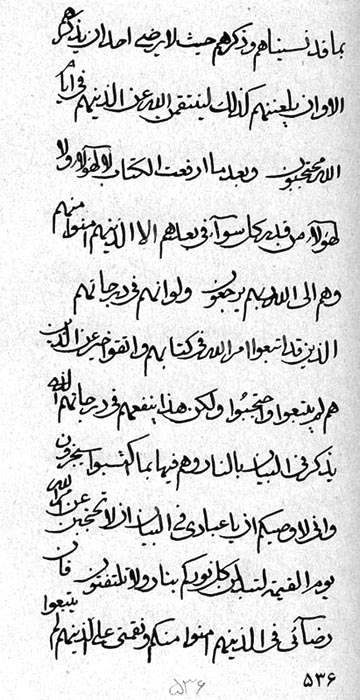 بما قد نسيناهم وذكرهم حيث لا يرضى احد ان يذكرهم
الا وان يلعنهم كذلك لينتقمن الله عن الذينهم في ايام
الله محتجبون وبعد ما ارفعت الكتاب لا لهؤلاء ولا
لهؤلاء من قدر كل سوآء في بعدهم الا الذينهم امنوا منهم
وهم الى الله ربهم يرجعون ولو انهم في درجاتهم
الذين قد اتبعوا امر الله في كتابهم واتقوا خير عن الذين
هم لم يتبعوا واحتجبوا ولكن هذا ينفعهم في درجاتهم الله
يذكر في البيان بالنار وهم فيها بما كتسبوا يجزون
وانى لاوصيكم ان يا عبادى في البيان ان لا تحتجبن عن من يظهره الله
يوم القيمة لتبدلن كل نوركم بنار ولا تلتفتون فان
رضآئى في الذينهم امنوا منكم ونقمتى على الذينهم لم يتبعوا
٥٣٦
٥٣٦